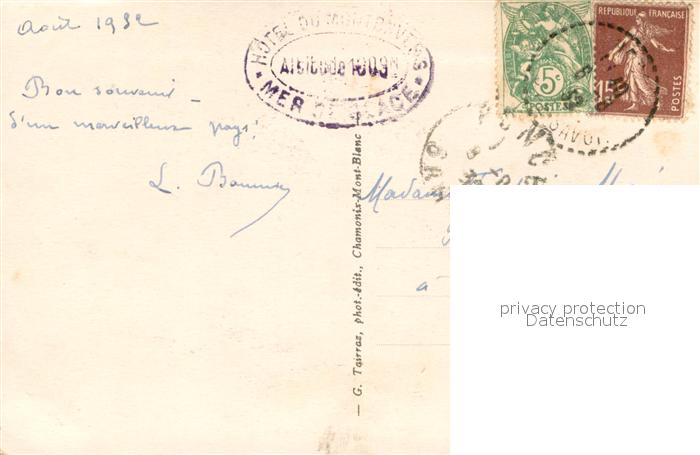 Août 1932
Bon souvenir -
d'un merveilleux pays!
L.
HÔTEL DU MONTENVERS
Altitude 1909
MER DE GLACE
5c
POSTES
RÉPUBLIQUE FRANÇAISE
15c
POSTES
— G. Tairraz, phot.-édit., Chamonix-Mont-Blanc
Madame
à
privacy protection
Datenschutz